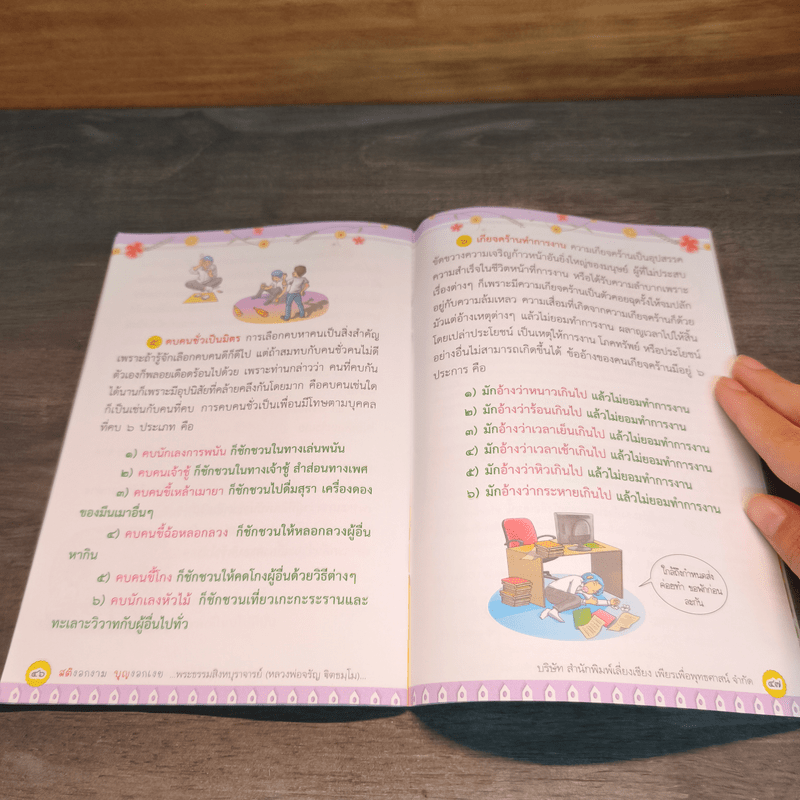 ๕ คบคนชั่วเป็นมิตร การเลือกคบหาคนเป็นสิ่งสำคัญ
เพราะถ้ารู้จักเลือกคบคนดีก็ดีไป แต่ถ้าสมทบกับคนชั่วคนไม่ดี
ตัวเองก็พลอยเดือดร้อนไปด้วย เพราะท่านกล่าวว่า คนที่คบกัน
ได้นานก็เพราะมีอุปนิสัยที่คล้ายคลึงกันโดยมาก คือคบคนเช่นใด
ก็เป็นเช่นกับคนที่คบ การคบคนชั่วเป็นเพื่อนมีโทษตามบุคคล
ที่คบ ๖ ประเภท คือ
๑) คบนักเลงการพนัน ก็ชักชวนในทางเล่นพนัน
๒) คบคนเจ้าชู้ ก็ชักชวนในทางเจ้าชู้ สำส่อนทางเพศ
๓) คบคนขี้เหล้าเมายา ก็ชักชวนไปดื่มสุรา เครื่องดอง
ของมึนเมาอื่นๆ
๔) คบคนขี้ฉ้อหลอกลวง ก็ชักชวนให้หลอกลวงผู้อื่น
หากิน
๕) คบคนขี้โกง ก็ชักชวนให้คดโกงผู้อื่นด้วยวิธีต่างๆ
๖) คบนักเลงหัวไม้ ก็ชักชวนเที่ยวเกะกะระรานและ
ทะเลาะวิวาทกับผู้อื่นไปทั่ว
๔๖ สติงอกงาม บุญงอกเงย ...พระธรรมสิงหบุราจารย์ (หลวงพ่อจรัญ ฐิตธมฺโม)...
๖ เกียจคร้านทำการงาน ความเกียจคร้านเป็นอุปสรรค
ขัดขวางความเจริญก้าวหน้าอันยิ่งใหญ่ของมนุษย์ ผู้ที่ไม่ประสบ
ความสำเร็จในชีวิตหน้าที่การงาน หรือได้รับความลำบากเพราะ
เรื่องต่างๆ ก็เพราะมีความเกียจคร้านเป็นตัวคอยฉุดรั้งให้จมปลัก
อยู่กับความล้มเหลว ความเสื่อมที่เกิดจากความเกียจคร้านก็ด้วย
มัวแต่อ้างเหตุต่างๆ แล้วไม่ยอมทำการงาน ผลาญเวลาไปให้สิ้น
โดยเปล่าประโยชน์ เป็นเหตุให้การงาน โภคทรัพย์ หรือประโยชน์
อย่างอื่นไม่สามารถเกิดขึ้นได้ ข้ออ้างของคนเกียจคร้านมีอยู่ ๖
ประการ คือ
๑) มักอ้างว่าหนาวเกินไป แล้วไม่ยอมทำการงาน
๒) มักอ้างว่าร้อนเกินไป แล้วไม่ยอมทำการงาน
๓) มักอ้างว่าเวลาเย็นเกินไป แล้วไม่ยอมทำการงาน
๔) มักอ้างว่าเวลาเช้าเกินไป แล้วไม่ยอมทำการงาน
๕) มักอ้างว่าหิวเกินไป แล้วไม่ยอมทำการงาน
๖) มักอ้างว่ากระหายเกินไป แล้วไม่ยอมทำการงาน
ใกล้ถึงกำหนดส่ง
ค่อยทำ ขอพักก่อน
ละกัน
บริษัท สำนักพิมพ์เลี่ยงเชียง เพียรเพื่อพุทธศาสน์ จำกัด ๔๗